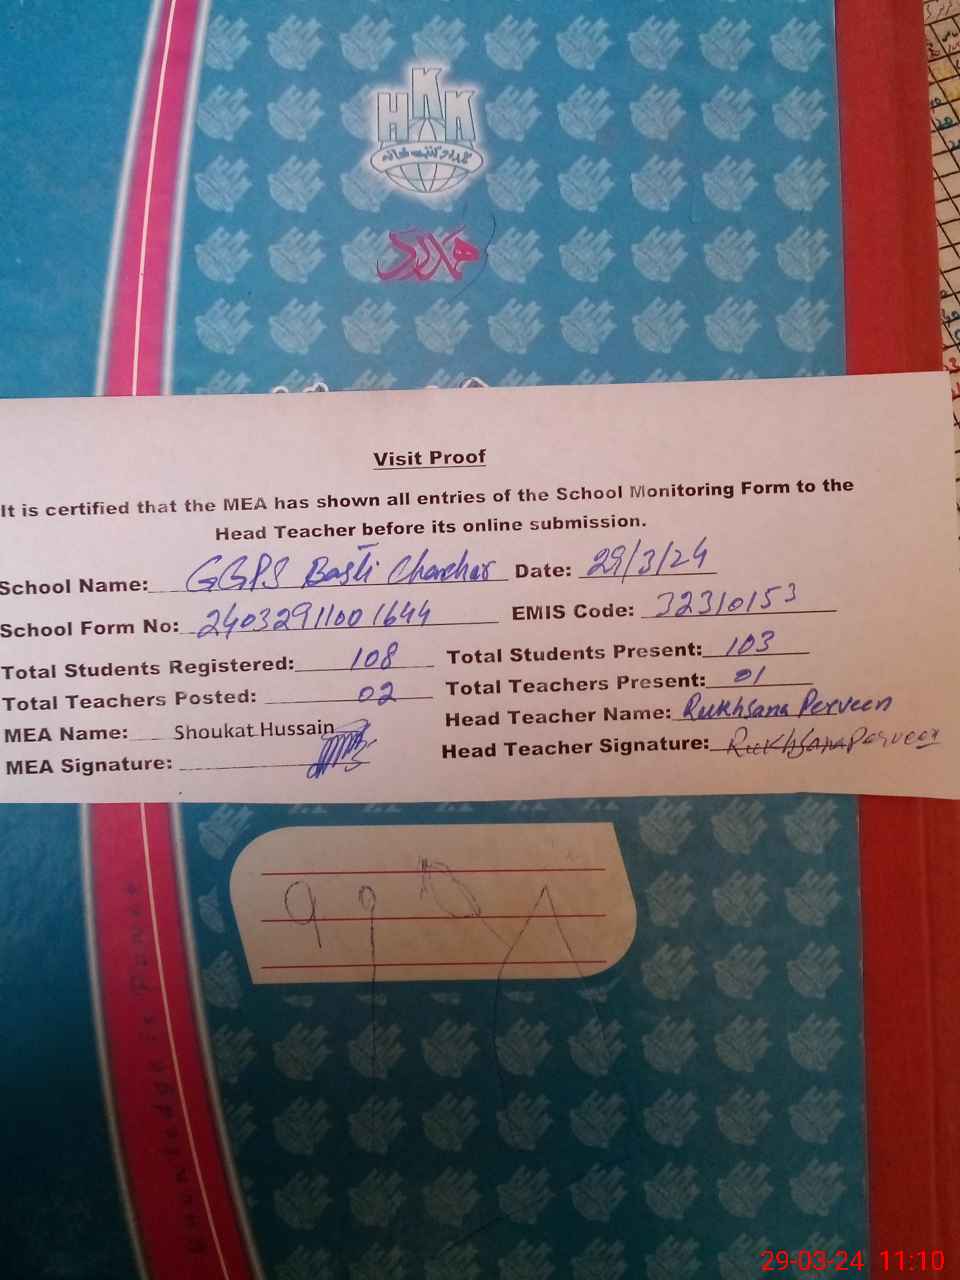 HKK
ہمدرد کتب خانہ
ہمدرد
Visit Proof
It is certified that the MEA has shown all entries of the School Monitoring Form to the
Head Teacher before its online submission.
School Name: GGPS Basti Charhar Date: 29/3/24
School Form No: 24032911001644 EMIS Code: 32310153
Total Students Registered: 108 Total Students Present: 103
Total Teachers Posted: 02 Total Teachers Present: 01
MEA Name: Shoukat Hussain Head Teacher Name: Rukhsana Perveen
MEA Signature: Head Teacher Signature: Rukhsana Parveen
Knowledge is Power
29-03-24 11:10